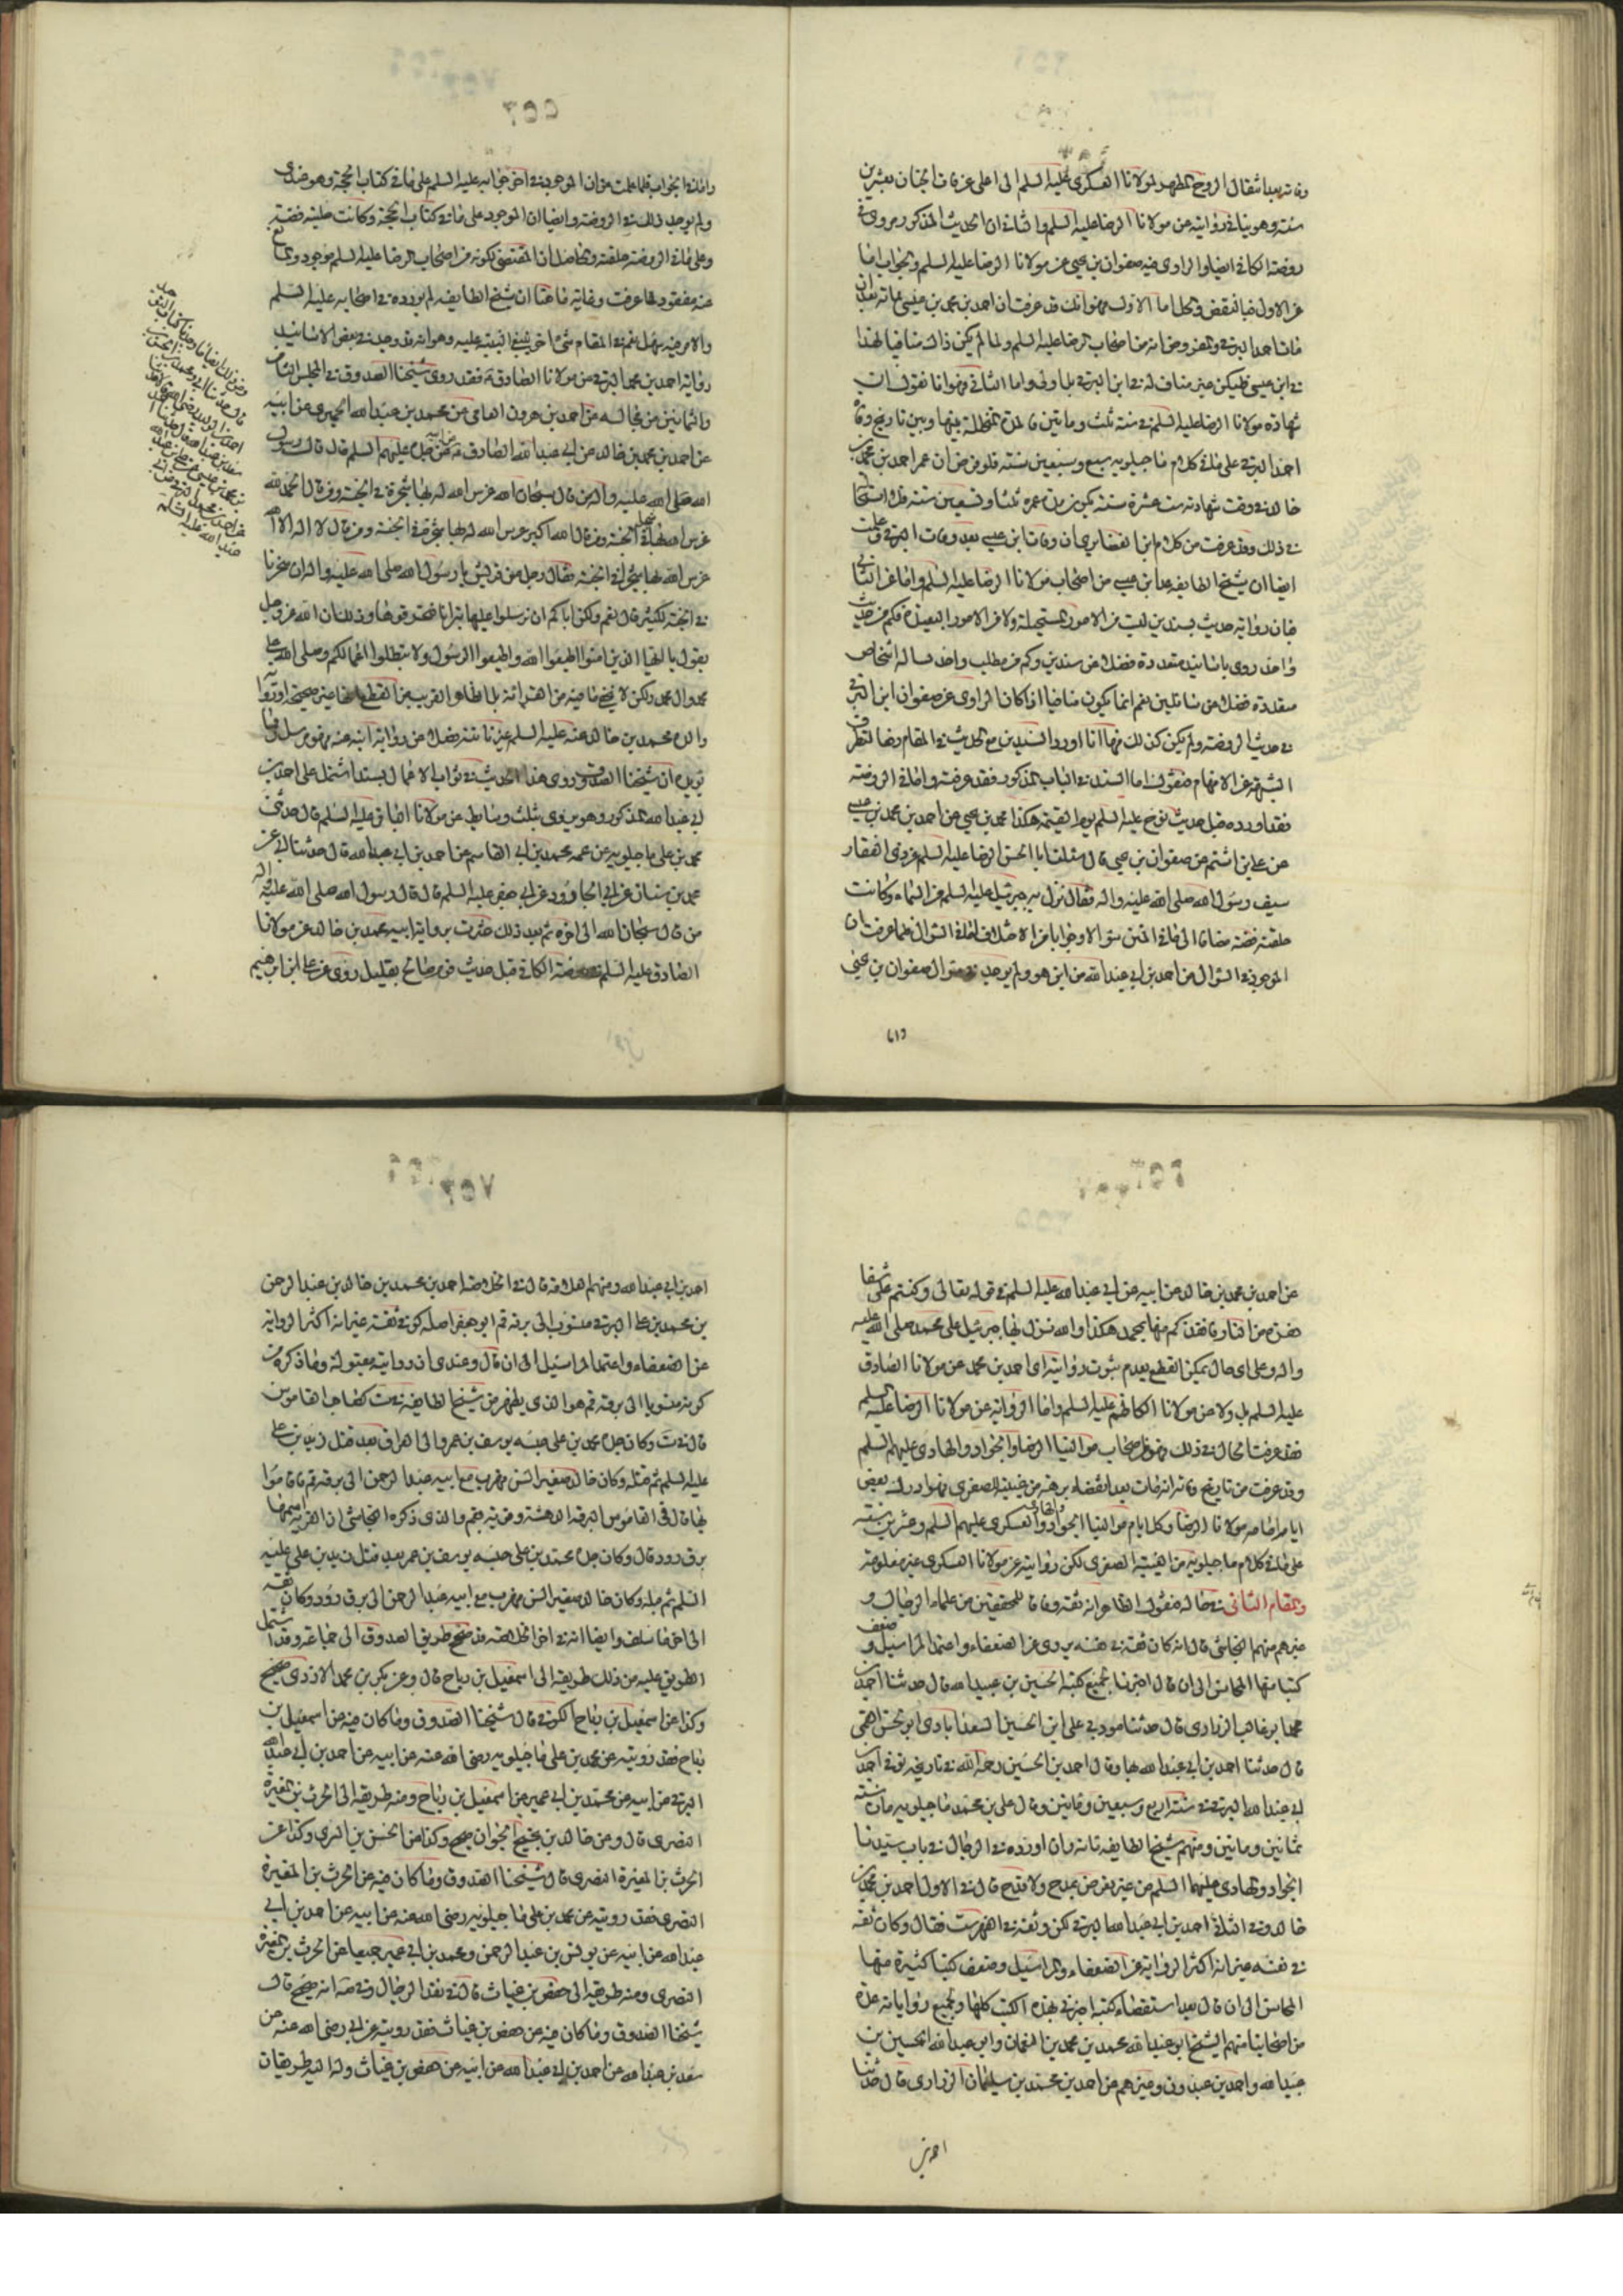 وفاته بعد انتقال الروح المطهر لمولانا العسكري عليه السلم الى اعلى غرفات الجنان بعشرين
سنة وهو ينافي روايته عن مولانا الرضا عليه السلم والثاني ان الحديث المذكور مروي في
روضة الكافي ايضا والراوي فيه صفوان بن يحيى عن مولانا الرضا عليه السلم والجواب اما
عن الاول فبالنقض والحل اما الاول فهو انك قد عرفت ان احمد بن محمد بن عيسى مات بعد ان
مات احمد البرقي والمفروض انه من اصحاب الرضا عليه السلم ولما لم يكن ذلك منافيا لهذا
في ابن عيسى فليكن غير مناف له في ابن البرقي بل اولى واما الثاني فهو انا نقول ان
شهادة مولانا الرضا عليه السلم في سنة ثلث ومأتين فالمدة المتخللة بينها وبين تاريخ وفاة
احمد البرقي على ما في كلام ماجيلويه سبع وسبعين سنة فلو فرض ان عمر احمد بن محمد بن
خالد في وقت شهادته ست عشرة سنة يكون مدة عمره ثلثا وتسعين سنة فلا استحالة
في ذلك وقد عرفت من كلام ابن الغضايري ان وفات ابن عيسى بعد وفات البرقي وقد علمت
ايضا ان شيخ الطايفه عد ابن عيسى من اصحاب مولانا الرضا عليه السلم واما عن الثاني
فبان رواية حديث بسندين ليست من الامور المستحيلة ولا من الامور البعيدة فكم من حديث
واحد روى باسانيد متعددة فضلا عن سندين وكم من مطلب واحد ساله اشخاص
متعددة فضلا عن سائلين نعم انما يكون منافيا اذا كان الراوي عن صفوان ابن البرقي
في حديث الروضة ولم يكن كذلك فها انا اورد السندين مع الحديث في المقام رفعا لتطرق
الشبهة عن الافهام فنقول اما السند في الباب المذكور فقد عرفته واما في الروضة
فقد اورده قبل حديث نوح عليه السلم يوم القيمة هكذا محمد بن يحيى عن احمد بن محمد بن عيسى
عن علي بن اشيم عن صفوان بن يحيى قال سئلت ابا الحسن الرضا عليه السلم عن ذي الفقار
سيف رسول الله صلى الله عليه واله فقال نزل به جبرئيل عليه السلم من السماء وكانت
حلقته فضة مضافا الى ما في المتن سؤالا وجوابا من الاختلاف اما في السؤال فلما عرفت ان
الموجود في السؤال من احمد بن ابي عبد الله من اين هو ولم يوجد في سؤال صفوان بن يحيى
واما
٥٥٦
واما في الجواب فلما علمت من ان الموجود في اخر جوابه عليه السلم على ما في كتاب الحجة وهو عندي
ولم يوجد ذلك في الروضة وايضا ان الموجود على ما في كتاب الحجة وكانت حليته فضة
وعلى ما في الروضة حلقته والحاصل ان المقتضي لكونه من اصحاب الرضا عليه السلم موجود والمانع
عنه مفقود لما عرفت وغايته ان شيخ الطايفه لم يورده في اصحابه عليه السلم
والامر فيه سهل نعم في المقام شئ اخر ينبغي التنبيه عليه وهو انه قد وجد في بعض الاسانيد
رواية احمد بن محمد البرقي عن مولانا الصادق ع فقد روى شيخنا الصدوق في المجلس الثامن
والثمانين من مجالسه عن احمد بن هرون الفامي عن محمد بن عبد الله الحميري عن ابيه
عن احمد بن محمد بن خالد عن ابي عبد الله الصادق عن ابيه عن جده عليهم السلم قال قال رسول
الله صلى الله عليه واله من قال سبحان الله غرس الله له بها شجرة في الجنة ومن قال الحمد لله
غرس الله له بها شجرة في الجنة ومن قال الله اكبر غرس الله له بها شجرة في الجنة ومن قال لا اله الا الله
غرس الله له بها شجرة في الجنة فقال رجل من قريش يا رسول الله صلى الله عليه واله ان شجرنا
في الجنة لكثير قال نعم ولكن اياكم ان ترسلوا عليها نيرانا فتحرقوها وذلك ان الله عز وجل
يقول يا ايها الذين امنوا اطيعوا الله واطيعوا الرسول ولا تبطلوا اعمالكم وصلى الله على
محمد وال محمد ولكن لا يخفى ما فيه من
والد محمد بن خالد عنه عليه السلم غير ثابتة فضلا عن رواية ابنه عنه فهو مرسل ومما
يؤيده ان شيخنا الصدوق روى هذا الحديث في ثواب الاعمال بسند اشتمل على احمد بن
ابي عبد الله المذكور وهو يروي بثلث وسائط عن مولانا الباقر عليه السلم قال حدثني
محمد بن علي ماجيلويه عن عمه محمد بن ابي القاسم عن احمد بن ابي عبد الله قال حدثنا ابي عن
محمد بن سنان عن ابي الجارود عن ابي جعفر عليه السلم قال قال رسول الله صلى الله عليه واله
من قال سبحان الله الى اخره ثم بعد ذلك عثرت برواية ابيه محمد بن خالد عن مولانا
الصادق عليه السلم في روضة الكافي قبل حديث قوم صالح بقليل روى عن علي ابن ابرهيم
عن احمد بن محمد بن خالد عن ابيه عن ابي عبد الله عليه السلم في قوله تعالى وكنتم على شفا
حفرة من النار فانقذكم منها بمحمد هكذا والله نزل بها جبرئيل على محمد صلى الله عليه
واله وعلى اي حال يمكن القطع بعدم ثبوت رواية اي احمد بن محمد عن مولانا الصادق
عليه السلم بل ولا عن مولانا الكاظم عليه السلم واما الرواية عن مولانا الرضا عليه السلم
فقد عرفت الحال في ذلك وهو من اصحاب موالينا الرضا والجواد والهادي عليهم السلم
وقد عرفت من تاريخ وفاته انه مات بعد انقضاء برهة من غيبته الصغرى فهو ادرك بعض
ايام امامة مولانا الرضا وكل ايام موالينا الجواد والهادي والعسكري عليهم السلم وعشرين سنة
على ما في كلام ماجيلويه من الغيبة الصغرى لكن روايته عن مولانا العسكري غير معلومة
والمقام الثاني في حاله فنقول الظاهر انه ثقة وفاقا للمحققين من علماء الرجال و
غيرهم منهم النجاشي قال انه كان ثقة في نفسه يروي عن الضعفاء واعتمد المراسيل وصنف
كتبا منها المحاسن الى ان قال اخبرنا بجميع كتبه الحسين بن عبيد الله قال حدثنا احمد بن
محمد ابو غالب الزراري قال حدثنا مؤدبي علي ابن الحسين السعدابادي ابو الحسن القمي
قال حدثنا احمد بن ابي عبد الله بها وقال احمد بن الحسين رحمه الله في تاريخه توفي احمد بن
ابي عبد الله البرقي في سنة اربع وسبعين ومأتين وقال علي بن محمد ماجيلويه مات سنة
ثمانين ومأتين ومنهم شيخ الطايفه فانه وان اورده في الرجال في باب سيدنا
الجواد والهادي عليهما السلم من غير تعرض بمدح ولا قدح قال في الاول احمد بن محمد بن
خالد وفي الثاني احمد بن ابي عبد الله البرقي لكن وثقه في الفهرست فقال وكان ثقة
في نفسه غير انه اكثر الرواية عن الضعفاء والمراسيل وصنف كتبا كثيرة منها
المحاسن الى ان قال بعد استقصاء كتبه اخبرني بهذه الكتب كلها وبجميع رواياته عدة
من اصحابنا منهم الشيخ ابو عبد الله محمد بن محمد بن النعمان وابو عبد الله الحسين بن
عبيد الله واحمد بن عبدون وغيرهم عن احمد بن محمد بن سليمان الزراري قال حدثنا
احمد بن ابي عبد الله ومنهم العلامة قال في الخلاصة احمد بن محمد بن خالد بن عبد الرحمن
بن محمد بن علي البرقي منسوب الى برقة قم ابو جعفر اصله كوفي ثقة غير انه اكثر الرواية
عن الضعفاء واعتمد المراسيل الى ان قال وعندي ان روايته مقبولة وما ذكره من
كونه منسوبا الى برقة قم هو الذي يظهر من شيخ الطايفه في ست كصاحب القاموس
قال في ست وكان جده محمد بن علي حبسه يوسف بن عمر والي العراق بعد قتل زيد بن علي
عليه السلم ثم قتله وكان خالد صغير السن فهرب مع ابيه عبد الرحمن الى برقة قم فاقاموا
بها قال في القاموس البرقة الدهشة وقرية بقم والذي ذكره النجاشي ان القرية اسمها
برق رود قال وكان جده محمد بن علي حبسه يوسف بن عمر بعد قتل زيد بن علي عليه
السلم ثم قتله وكان خالد صغير السن فهرب مع ابيه عبد الرحمن الى برق رود وكان ثقة
الى اخر ما سلف وايضا انه في اخر الخلاصة قد صحح طريق الصدوق الى جماعة وقد اشتمل
الطريق عليه من ذلك طريقه الى اسمعيل بن رباح قال وعن بكر بن محمد الازدي صحيح
وكذا عن اسمعيل بن رباح الكوفي قال شيخنا الصدوق وما كان فيه عن اسمعيل بن
رباح فقد رويته عن محمد بن علي ماجيلويه رضي الله عنه عن ابيه عن احمد بن ابي عبد الله
البرقي عن ابيه عن محمد بن ابي عمير عن اسمعيل بن رباح ومنه طريقه الى الحرث بن المغيرة
النصري قال وعن خالد بن نجيح الجوان صحيح وكذا عن الحسن بن السري وكذا عن
الحرث بن المغيرة النصري قال شيخنا الصدوق وما كان فيه عن الحرث بن المغيرة
النصري فقد رويته عن محمد بن علي ماجيلويه رضي الله عنه عن ابيه عن احمد بن ابي
عبد الله عن ابيه عن يونس بن عبد الرحمن ومحمد بن ابي عمير جميعا عن الحرث بن المغيرة
النصري ومنه طريقه الى حفص بن غياث قال في نقد الرجال وفي صه انه صحيح قال
شيخنا الصدوق وما كان فيه عن حفص بن غياث فقد رويته عن ابي رضي الله عنه عن
سعد بن عبد الله عن احمد بن ابي عبد الله عن ابيه عن حفص بن غياث وله اليه طريقان